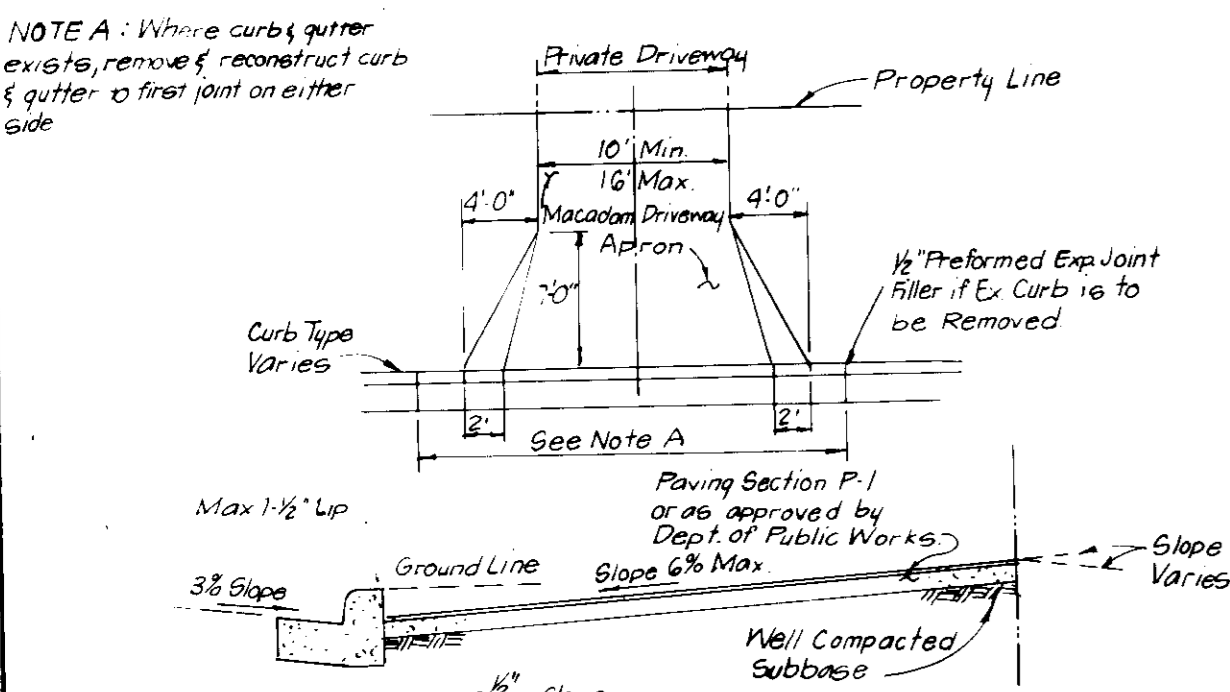 NOTE A : Where curb & gutter
exists, remove & reconstruct curb
& gutter to first joint on either
side
Private Driveway
Property Line
10' Min.
16' Max.
4'-0"
4'-0"
Macadam Driveway
Apron
7'-0"
1/2" Preformed Exp. Joint
Filler if Ex. Curb is to
be Removed.
Curb Type
Varies
2'
2'
See Note A
Max 1-1/2" Lip
Paving Section P-1
or as approved by
Dept. of Public Works.
Slope
Varies
Ground Line
Slope 6% Max.
3% Slope
Well Compacted
Subbase
1/2"